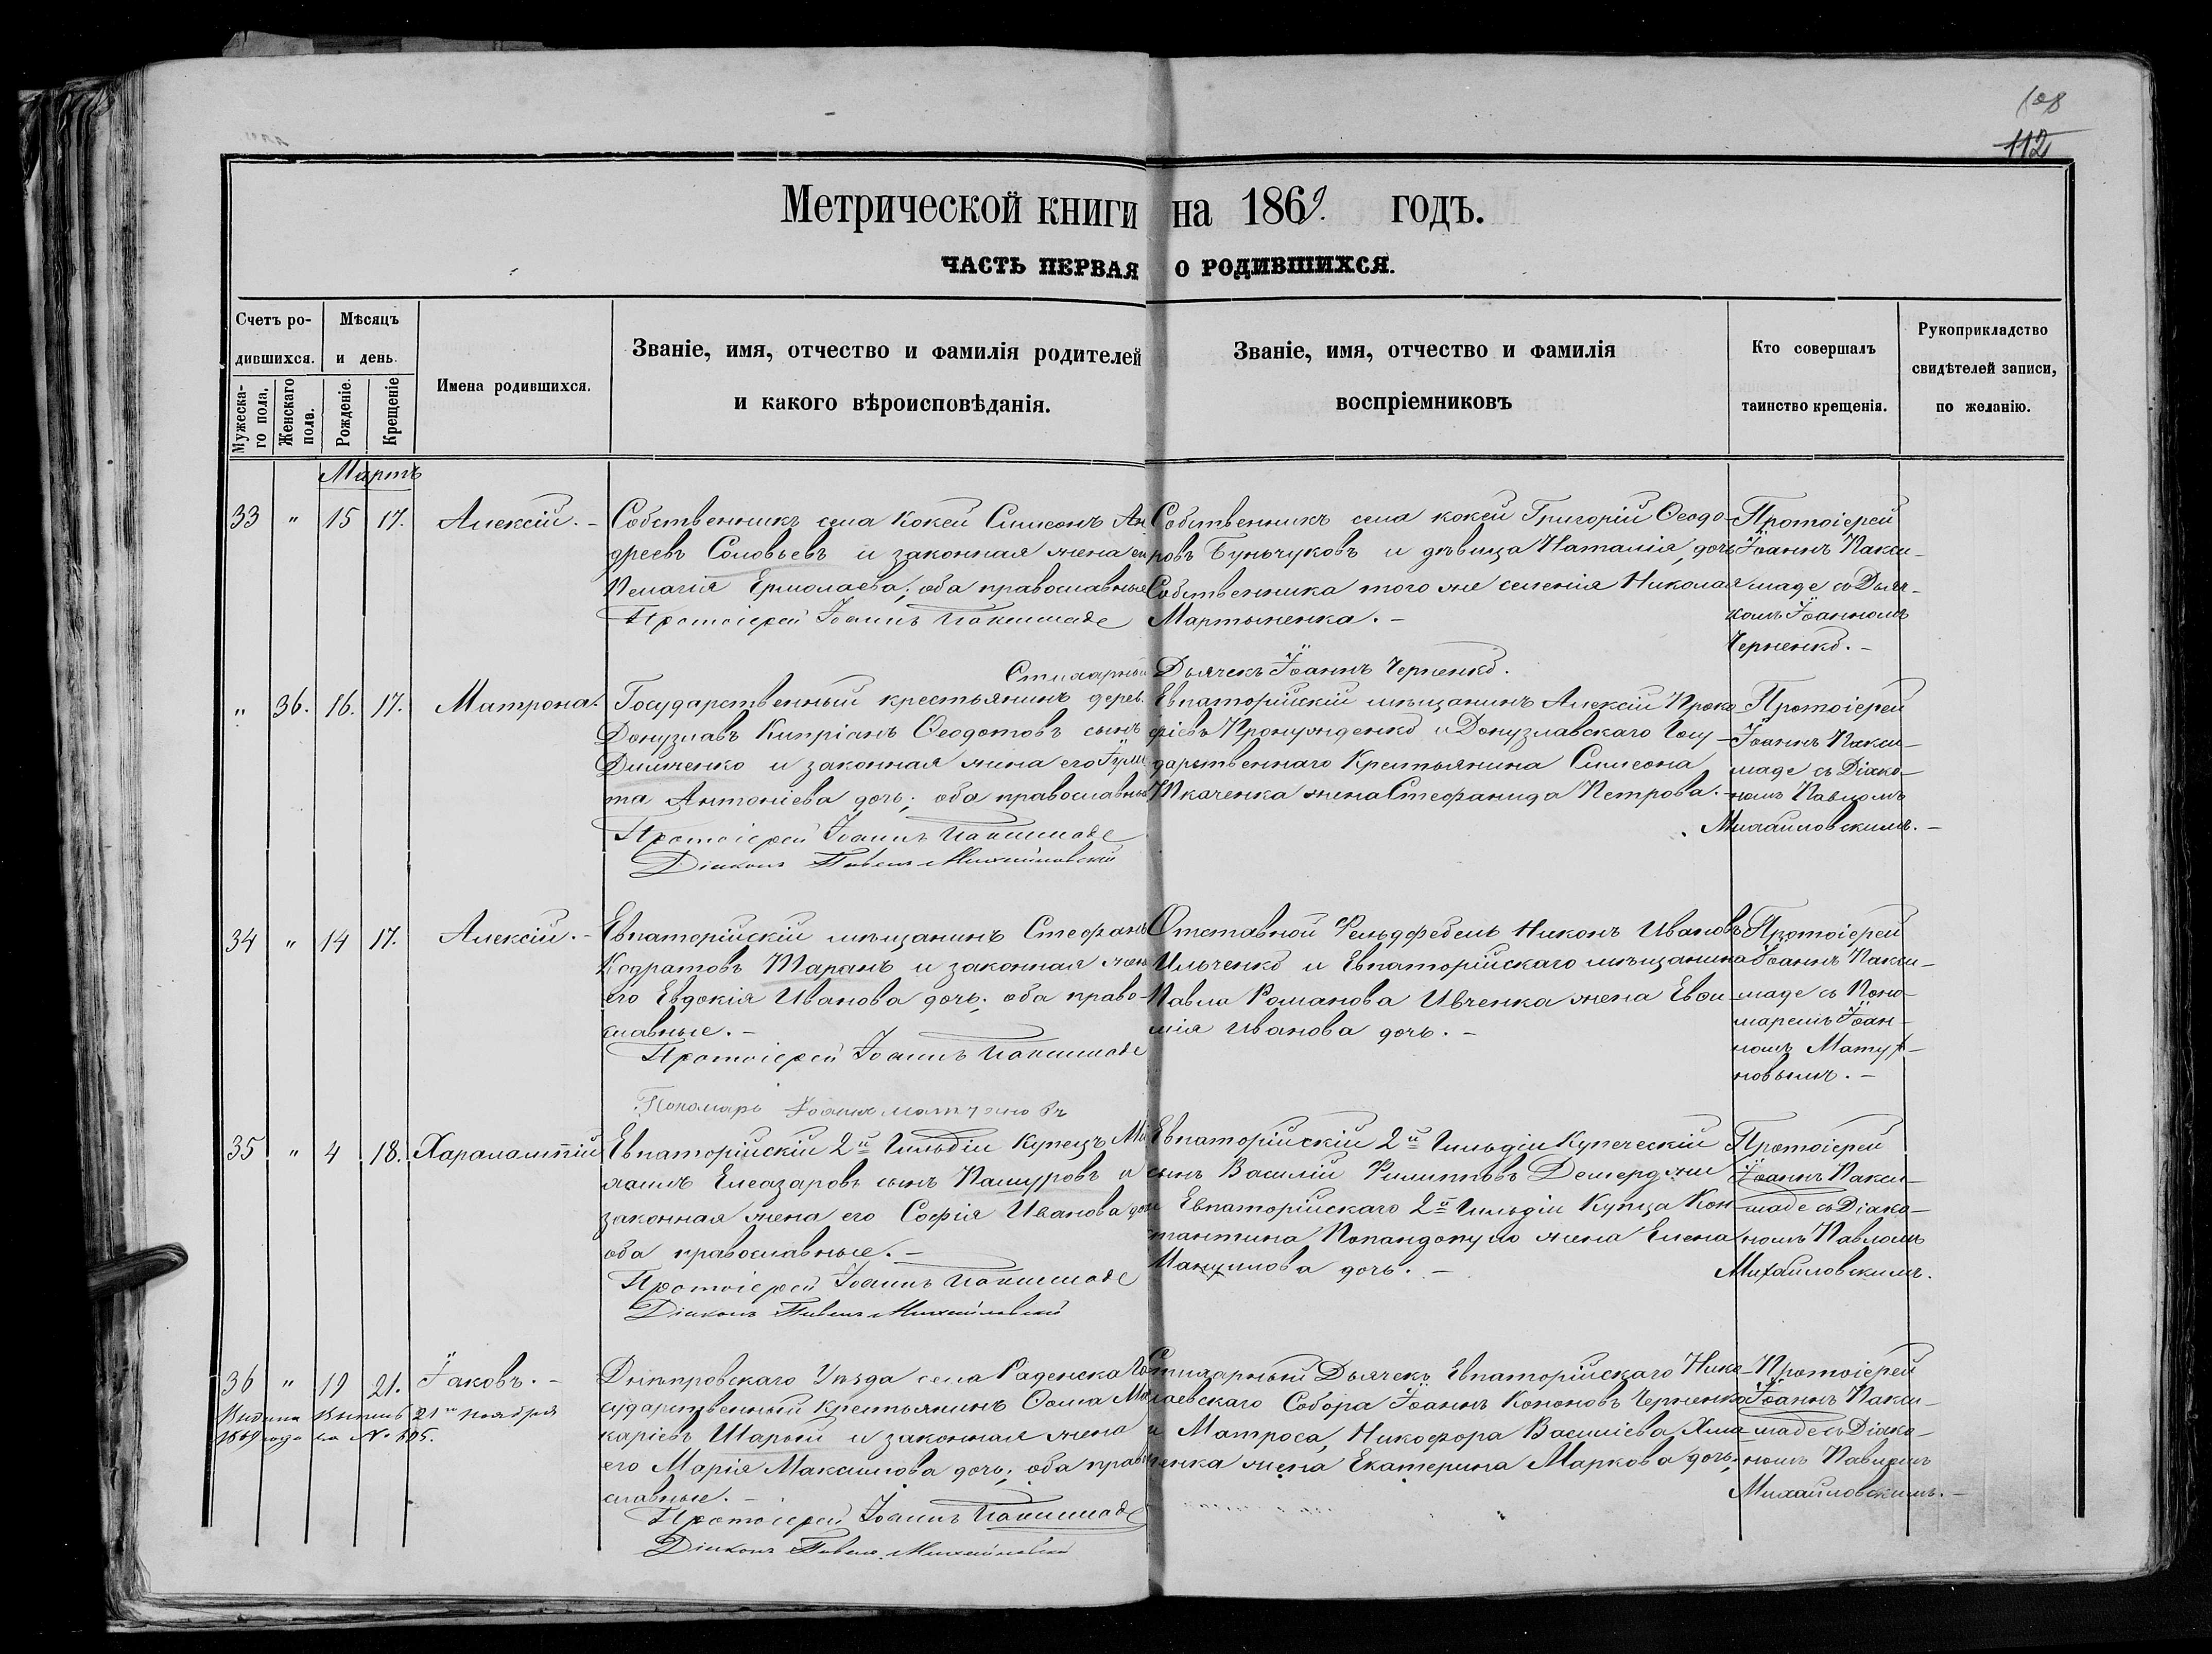 108
112
Метрической книги на 1869. годъ.
ЧАСТЬ ПЕРВАЯ О РОДИВШИХСЯ.
Счетъ ро-
дившихся.
Мужеска-
го пола.
Женскаго
пола.
Мѣсяцъ
и день.
Рожденіе.
Крещеніе
Имена родившихся.
Званіе, имя, отчество и фамилія родителей
и какого вѣроисповѣданія.
Званіе, имя, отчество и фамилія
воспріемниковъ
Кто совершалъ
таинство крещенія.
Рукоприкладство
свидѣтелей записи,
по желанію.
Мартъ
33 " 15 17. Алексій. -
Собственникъ села Кокей Симеонъ Ан
дреевъ Соловьевъ и законная жена его
Пелагія Ермолаева; оба православные
Протоіерей Іоаннъ Паксимаде
Собственникъ села кокей Григорій Ѳеодо-
ровъ Буньчуковъ и дѣвица Наталія, дочь
Собственника того же селенія Николая
Мартыненка. -
Протоіерей
Іоаннъ Пакси-
маде съ Дьяч-
комъ Іоанномъ
Черненко. -
Стихарный Дьячекъ Іоаннъ Черненко.
" 36. 16. 17. Матрона.
Государственный крестьянинъ дерев.
Донузлавъ Кипріанъ Ѳеодотовъ сынъ
Димченко и законная жена его
та Антоніева дочь; оба православные
Протоіерей Іоаннъ Паксимаде
Діаконъ Павелъ Михайловскій
Евпаторійскій мѣщанинъ Алексій Проко
фіевъ и Донузлавскаго Госу-
дарственнаго Крестьянина Симеона
Ткаченка жена Стефанида Петрова. -
Протоіерей
Іоаннъ Пакси-
маде съ Діако-
номъ Павломъ
Михайловскимъ. -
34 " 14 17. Алексій. -
Евпаторійскій мѣщанинъ Стефанъ
Кодратовъ Таранъ и законная жена
его Евдокія Иванова дочь; оба право-
славные. -
Протоіерей Іоаннъ Паксимаде
Пономарь Іоаннъ
Отставной Фельдфебель Никонъ Ивановъ
Ильченко и Евпаторійскаго мѣщанина
Павла Романова Ивченка жена Евѳи-
мія Иванова дочь. -
Протоіерей
Іоаннъ Пакси-
маде съ Поно-
маремъ Іоан-
номъ
новымъ. -
35 " 4 18. Харалампій
Евпаторійскій 2й Гильдіи Купецъ Ми
хаилъ Елеазаровъ сынъ Пашуровъ и
законная жена его Софія Иванова дочь
оба православные. -
Протоіерей Іоаннъ Паксимаде
Діаконъ Павелъ Михайловскій
Евпаторійскій 2й Гильдіи Купеческій
сынъ Василій Филипповъ Демерджи
и Евпаторійскаго 2й Гильдіи Купца Кон-
стантина Попандопуло жена Елена
Мануилова дочь. -
Протоіерей
Іоаннъ Пакси-
маде съ Діако-
номъ Павломъ
Михайловскимъ.
36 " 19 21. Іаковъ. -
Выдана выпись 21го ноября
1869 года за № 105.
Днѣпровскаго Уѣзда села Раденска Го
сударственный крестьянинъ Ѳома Ма
каріевъ Шарый и законная жена
его Марія Максимова дочь; оба право
славные. -
Протоіерей Іоаннъ Паксимаде
Діаконъ Павелъ Михайловскій
Стихарный Дьячекъ Евпаторійскаго Нико-
лаевскаго Собора Іоаннъ Кононовъ Черненко
и Матроса, Никофора Василіева Хма-
ченка жена Екатерина Маркова дочь.
Протоіерей
Іоаннъ Пакси-
маде съ Діако-
номъ Павломъ
Михайловскимъ. -